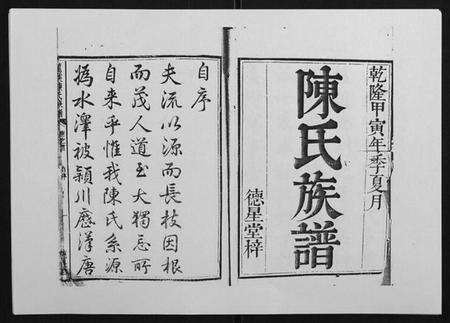 乾隆甲寅年季夏月
陳氏族譜
德星堂梓
自序
夫流以源而長枝因根
而茂人道至大獨忘所
自来乎惟我陳氏系源
媯水澤被潁川歷漢唐